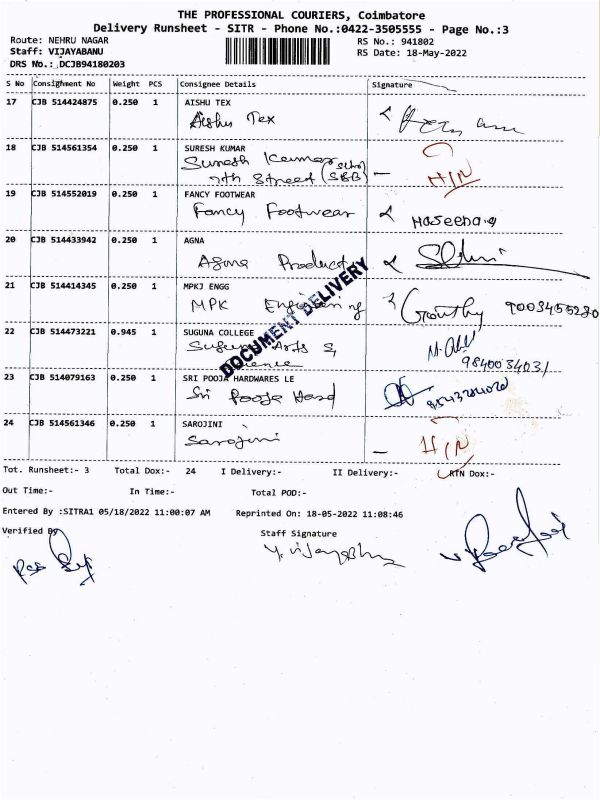 THE PROFESSIONAL COURIERS, Coimbatore
Delivery Runsheet - SITR - Phone No.:0422-3505555 - Page No.:3
Route: NEHRU NAGAR RS No.: 941802
Staff: VIJAYABANU RS Date: 18-May-2022
DRS No.: DCJB94180203
S No Consignment No Weight PCS Consignee Details Signature
17 CJB 514424875 0.250 1 AISHU TEX
Aishu Tex
18 CJB 514561354 0.250 1 SURESH KUMAR
Suresh Kumar
7th Street (SBB) HIN
19 CJB 514552019 0.250 1 FANCY FOOTWEAR
Fancy Footwear Haseena
20 CJB 514433942 0.250 1 AGNA
Agna Product
21 CJB 514414345 0.250 1 MPKJ ENGG
MPK Engineering Gowthy 9003455280
DOCUMENT DELIVERY
22 CJB 514473221 0.945 1 SUGUNA COLLEGE
Suguna Arts &
Science 9840034031
23 CJB 514079163 0.250 1 SRI POOJA HARDWARES LE
Sri Pooja Hard
24 CJB 514561346 0.250 1 SAROJINI
Sarojini HIN
Tot. Runsheet:- 3 Total Dox:- 24 I Delivery:- II Delivery:- RTN Dox:-
Out Time:- In Time:- Total POD:-
Entered By :SITRA1 05/18/2022 11:00:07 AM Reprinted On: 18-05-2022 11:08:46
Verified By Staff Signature